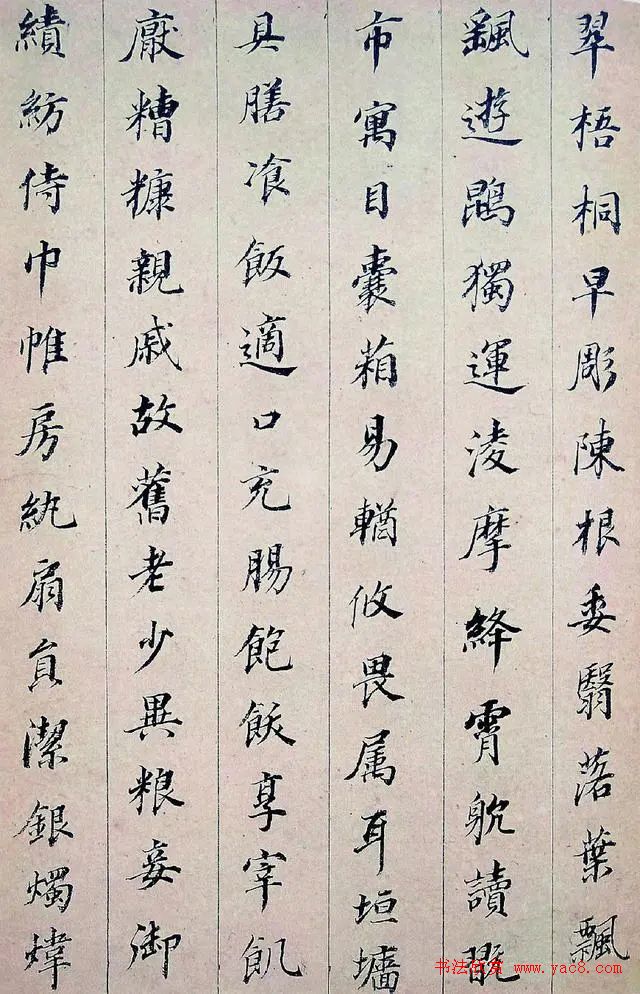 翠梧桐早彫陳根委翳落葉飄
飖遊鵾獨運淩摩絳霄躭讀翫
市寓目囊箱易輶攸畏属耳垣墻
具膳飡飯適口充腸飽飫享宰飢
厭糟糠親戚故舊老少異粮妾御
績紡侍巾帷房紈扇員潔銀燭煒
书法欣赏 www.yac8.com